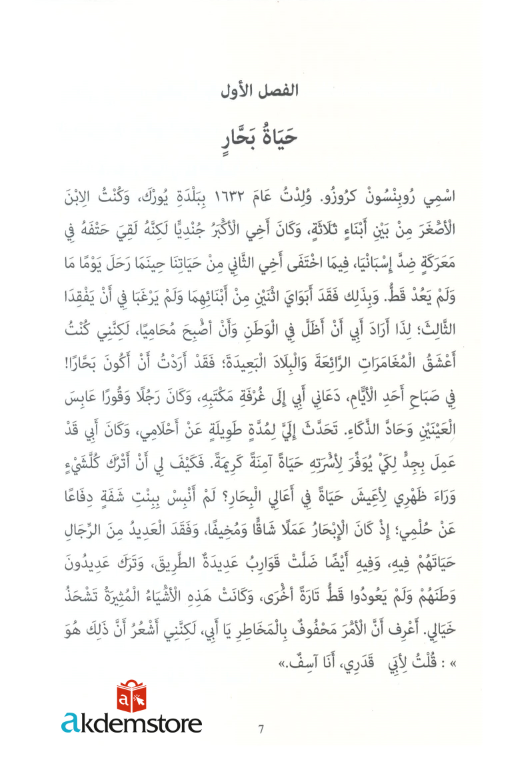 الفصل الأول
حَيَاةُ بَحَّارٍ
اسْمِي رُوبِنْسُونْ كرُوزُو. وُلِدْتُ عَامَ ١٦٣٢ بِبَلْدَةِ يُورْك، وَكُنْتُ الِابْنَ
الْأَصْغَرَ مِنْ بَيْنِ أَبْنَاءٍ ثَلَاثَةٍ، وَكَانَ أَخِي الْأَكْبَرُ جُنْدِيًّا لَكِنَّهُ لَقِيَ حَتْفَهُ فِي
مَعَرَكَةٍ ضِدَّ إِسْبَانْيَا، فِيمَا اخْتَفَى أَخِي الثَّانِي مِنْ حَيَاتِنَا حِينَمَا رَحَلَ يَوْمًا مَا
وَلَمْ يَعُدْ قَطُّ. وَبِذَلِك فَقَدَ أَبَوَايَ اثْنَيْنِ مِنْ أَبْنَائِهِمَا وَلَمْ يَرْغَبَا فِي أَنْ يَفْقِدَا
الثَّالِثَ؛ لِذَا أَرَادَ أَبِي أَنْ أَظَلَّ فِي الْوَطَنِ وَأَنْ أُصْبِحَ مُحَامِيًا، لَكِنَّنِي كُنْتُ
أَعْشَقُ الْمُغَامَرَاتِ الرَّائِعَةَ وَالْبِلَادَ الْبَعِيدَةَ؛ فَقَدْ أَرَدْتُ أَنْ أَكُونَ بَحَّارًا!
فِي صَبَاحِ أَحَدِ الْأَيَّامِ، دَعَانِي أَبِي إِلَى غُرْفَةِ مَكْتَبِهِ، وَكَانَ رَجُلًا وَقُورًا عَابِسَ
الْعَيْنَيْنِ وَحَادَّ الذَّكَاءِ. تَحَدَّثَ إِلَيَّ لِمُدَّةٍ طَوِيلَةٍ عَنْ أَحْلَامِي، وَكَانَ أَبِي قَدْ
عَمِلَ بِجِدٍّ لِكَيْ يُوَفِّرَ لِأُسْرَتِهِ حَيَاةً آمِنَةً كَرِيمَةً. فَكَيْفَ لِي أَنْ أَتْرُكَ كُلَّشَيْءٍ
وَرَاءَ ظَهْرِي لِأَعِيشَ حَيَاةً فِي أَعَالِي الْبِحَارِ؟ لَمْ أَنْبِسْ بِبِنْتِ شَفَةٍ دِفَاعًا
عَنْ حُلْمِي؛ إِذْ كَانَ الْإِبْحَارُ عَمَلًا شَاقًّا وَمُخِيفًا، وَفَقَدَ الْعَدِيدُ مِنَ الرِّجَالِ
حَيَاتَهُمْ فِيهِ، وَفِيهِ أَيْضًا ضَلَّتْ قَوَارِبُ عَدِيدَةٌ الطَّرِيقَ، وَتَرَكَ عَدِيدُونَ
وَطَنَهُمْ وَلَمْ يَعُودُوا قَطُّ تَارَةً أُخْرَى، وَكَانَتْ هَذِهِ الْأَشْيَاءُ الْمُثِيرَةُ تَشْحَذُ
خَيَالِي. أَعْرِف أَنَّ الْأَمْرَ مَحْفُوفٌ بِالْمَخَاطِرِ يَا أَبِي، لَكِنَّنِي أَشْعُرُ أَنَّ ذَلِكَ هُوَ
» : قُلْتُ لِأَبِي قَدَرِي، أَنَا آسِفٌ.»
akdemstore
7